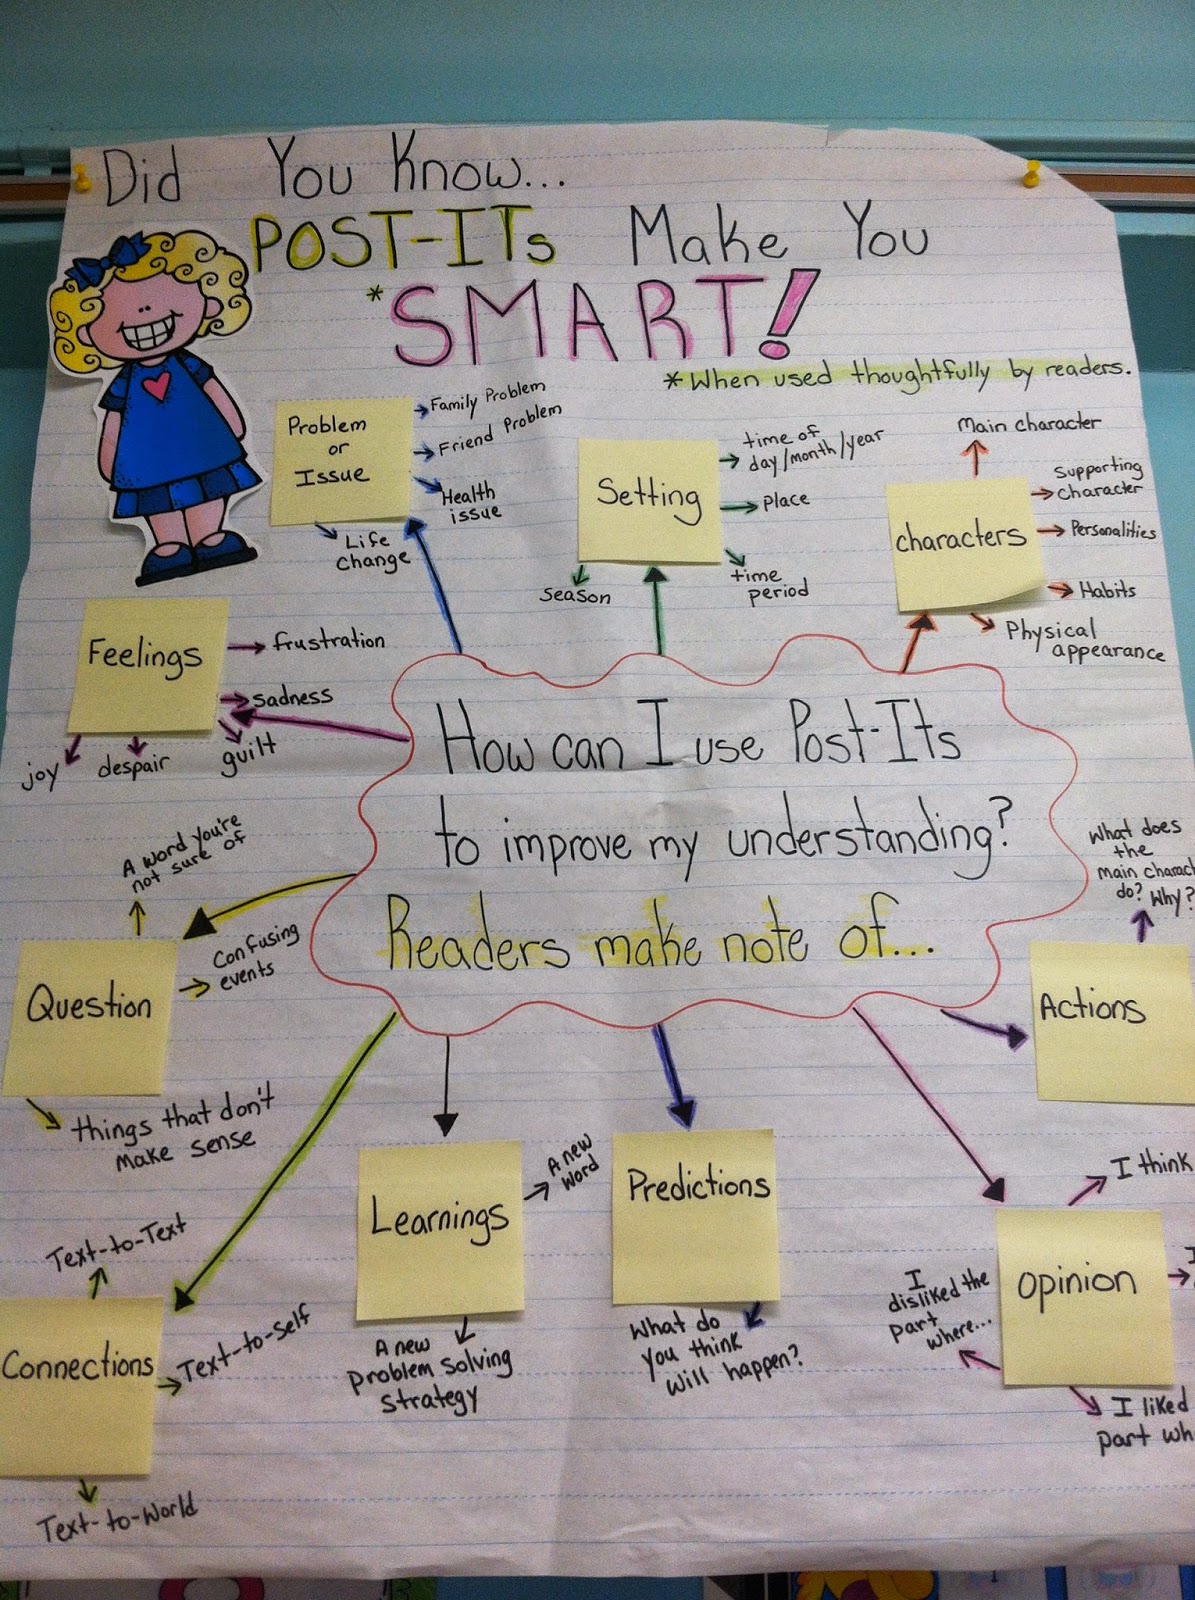 Did You Know...
POST-ITs Make You
*SMART!
*When used thoughtfully by readers.
Problem
or
Issue
Family Problem
Friend Problem
Health
issue
Life
change
Setting
time of
day/month/year
Place
time
period
Season
characters
Main character
Supporting
character
Personalities
Habits
Physical
appearance
Feelings
frustration
sadness
guilt
despair
joy
How can I use Post-Its
to improve my understanding?
Readers make note of...
Question
A word you're
not sure of
Confusing
events
things that don't
make sense
Actions
What does
the
main charact
do? Why?
Connections
Text-to-Text
Text-to-Self
Text-to-World
Learnings
A new
word
A new
problem solving
strategy
Predictions
What do
you think
will happen?
Opinion
I think
I
disliked the
part
where...
I liked
part wh